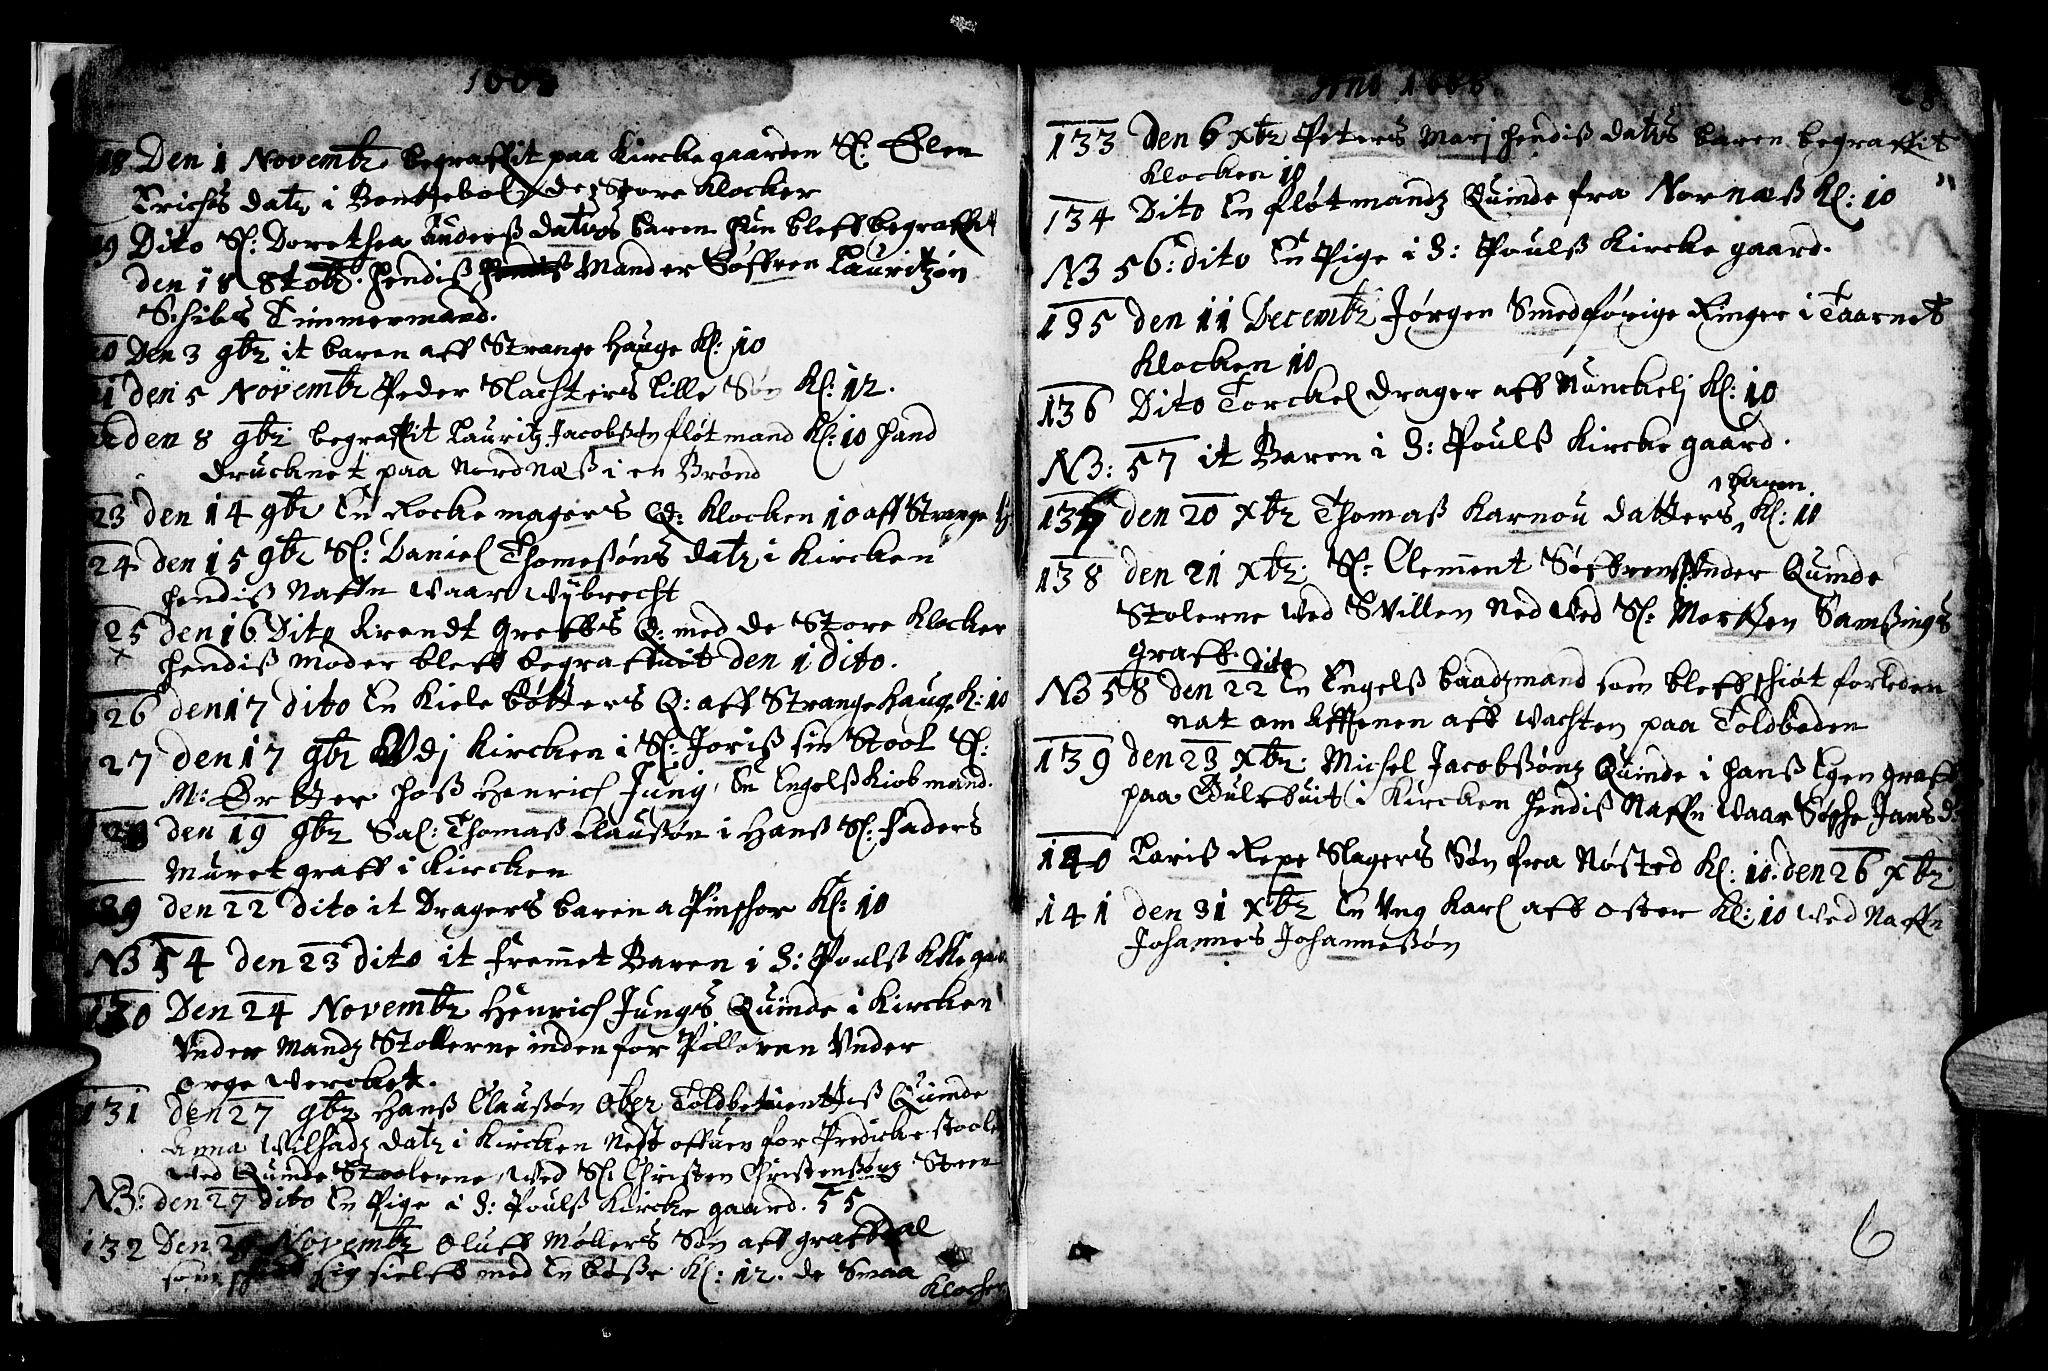 1668
118 Den 1 Novembr begraffit paa Kirckegaarden Sl: Elen
Erichs datr i Bentzebol de Store Klocker
119 Dito Sl: Dorethea Anderß datrs baren hun bleff begraffit
den 18 8tobr. hendiß hendiß Mand er Söffren Lauritzøn
Schibs Timmermand.
120 Den 3 9br it baren aff Strange hauge Kl: 10
121 den 5 Novembr Peder Slachters lille Søn Kl: 12.
122 den 8 9br begraffit Lauritz Jacobsøn fløtmand Kl: 10 hand
drucknet paa Nordnæß i en Brønd
123 den 14 9br En Rockemagers Q: Klocken 10 aff Strange h
124 den 15 9br Sl: Daniel Thomeßøns datr i Kircken
hendiß Naffn waar Wÿbrecht
125 den 16 Dito Arendt Greffs Q: med de Store Klocker
x hendiß Moder bleff begraffuit den 1 dito.
126 den 17 dito En Kiele bøtters Q: aff Strange hauge K: 10
127 den 17 9br Udj Kircken i Sl: Joriß sin Stool Sl:
M:Ørtter hoß Henrich Jung, En Engelß Kiobmand.
128 den 19 9br Sal: Thomaß Claußøn i Hanß Sl: faders
Muret graff i Kircken
129 den 22 dito it Dragers baren a Pinshor Kl: 10
NB 54 den 23 dito it fremmet Baren i S: Poulß KKe gaar
130 Den 24 Novembr Henrich Jungs Quinde i Kircken
Under Mandz Stollerne inden for Pilleren Under
orge Wercket.
131 den 27 9br Hanß Claußøn Ober Toldbetienttiß Quinde
Anna Wilhadz datr i Kircken Nest offuen for Predicke stoole
wed Quinde Stoolerne wed Sl: Christen Christenßønz Steen
NB: den 27 dito En Pige i S: Poulß Kircke gaard. 55
132 Den Novembr Oluff Møllers Søn aff graffdal
som sig sielff med En bøße Kl: 12. de Smaa
Klocker
Anno 1668
28
133 den 6 xbr Peters Marj hendiß datrs baren begraffit
Klocken 10
134 Dito En fløtmandz Quinde fra Nornæß Kl: 10
NB 56: dito En Pige i S: Poulß Kircke gaard.
135 den 11 Decembr Jørgen Smed förige Ringer i Taarnet
Klocken 10
136 Dito Torckel drager aff Nunckelj Kl: 10
NB: 57 it Baren i S: Poulß Kircke gaard.
1 baren
137 den 20 xbr Thomaß Karnou datters Kl: 10
138 den 21 xbr: Sl: Clement Søffrensøn under Quinde
Stolerne wed Svillen Ned wed Sl: Morten Samßings
graff. dito
NB 58 den 22 En Engelß baadzmand som bleff skiøt forleden
nat om Afftenen aff wachten paa Toldboden
139 den 23 xbr: Michel Jacobßønz Quinde i hanß Egen graff
paa Gulfbuit i Kircken hendiß Naffn waar Søphe Jans D:
140 Lariß Repe Slagers Søn fra Nøsted Kl: 10. den 26 xbr
141 den 31 xbr En Ung Karl aff Oster Kl: 10 wed Naffn
Johannes Johannesøn
6